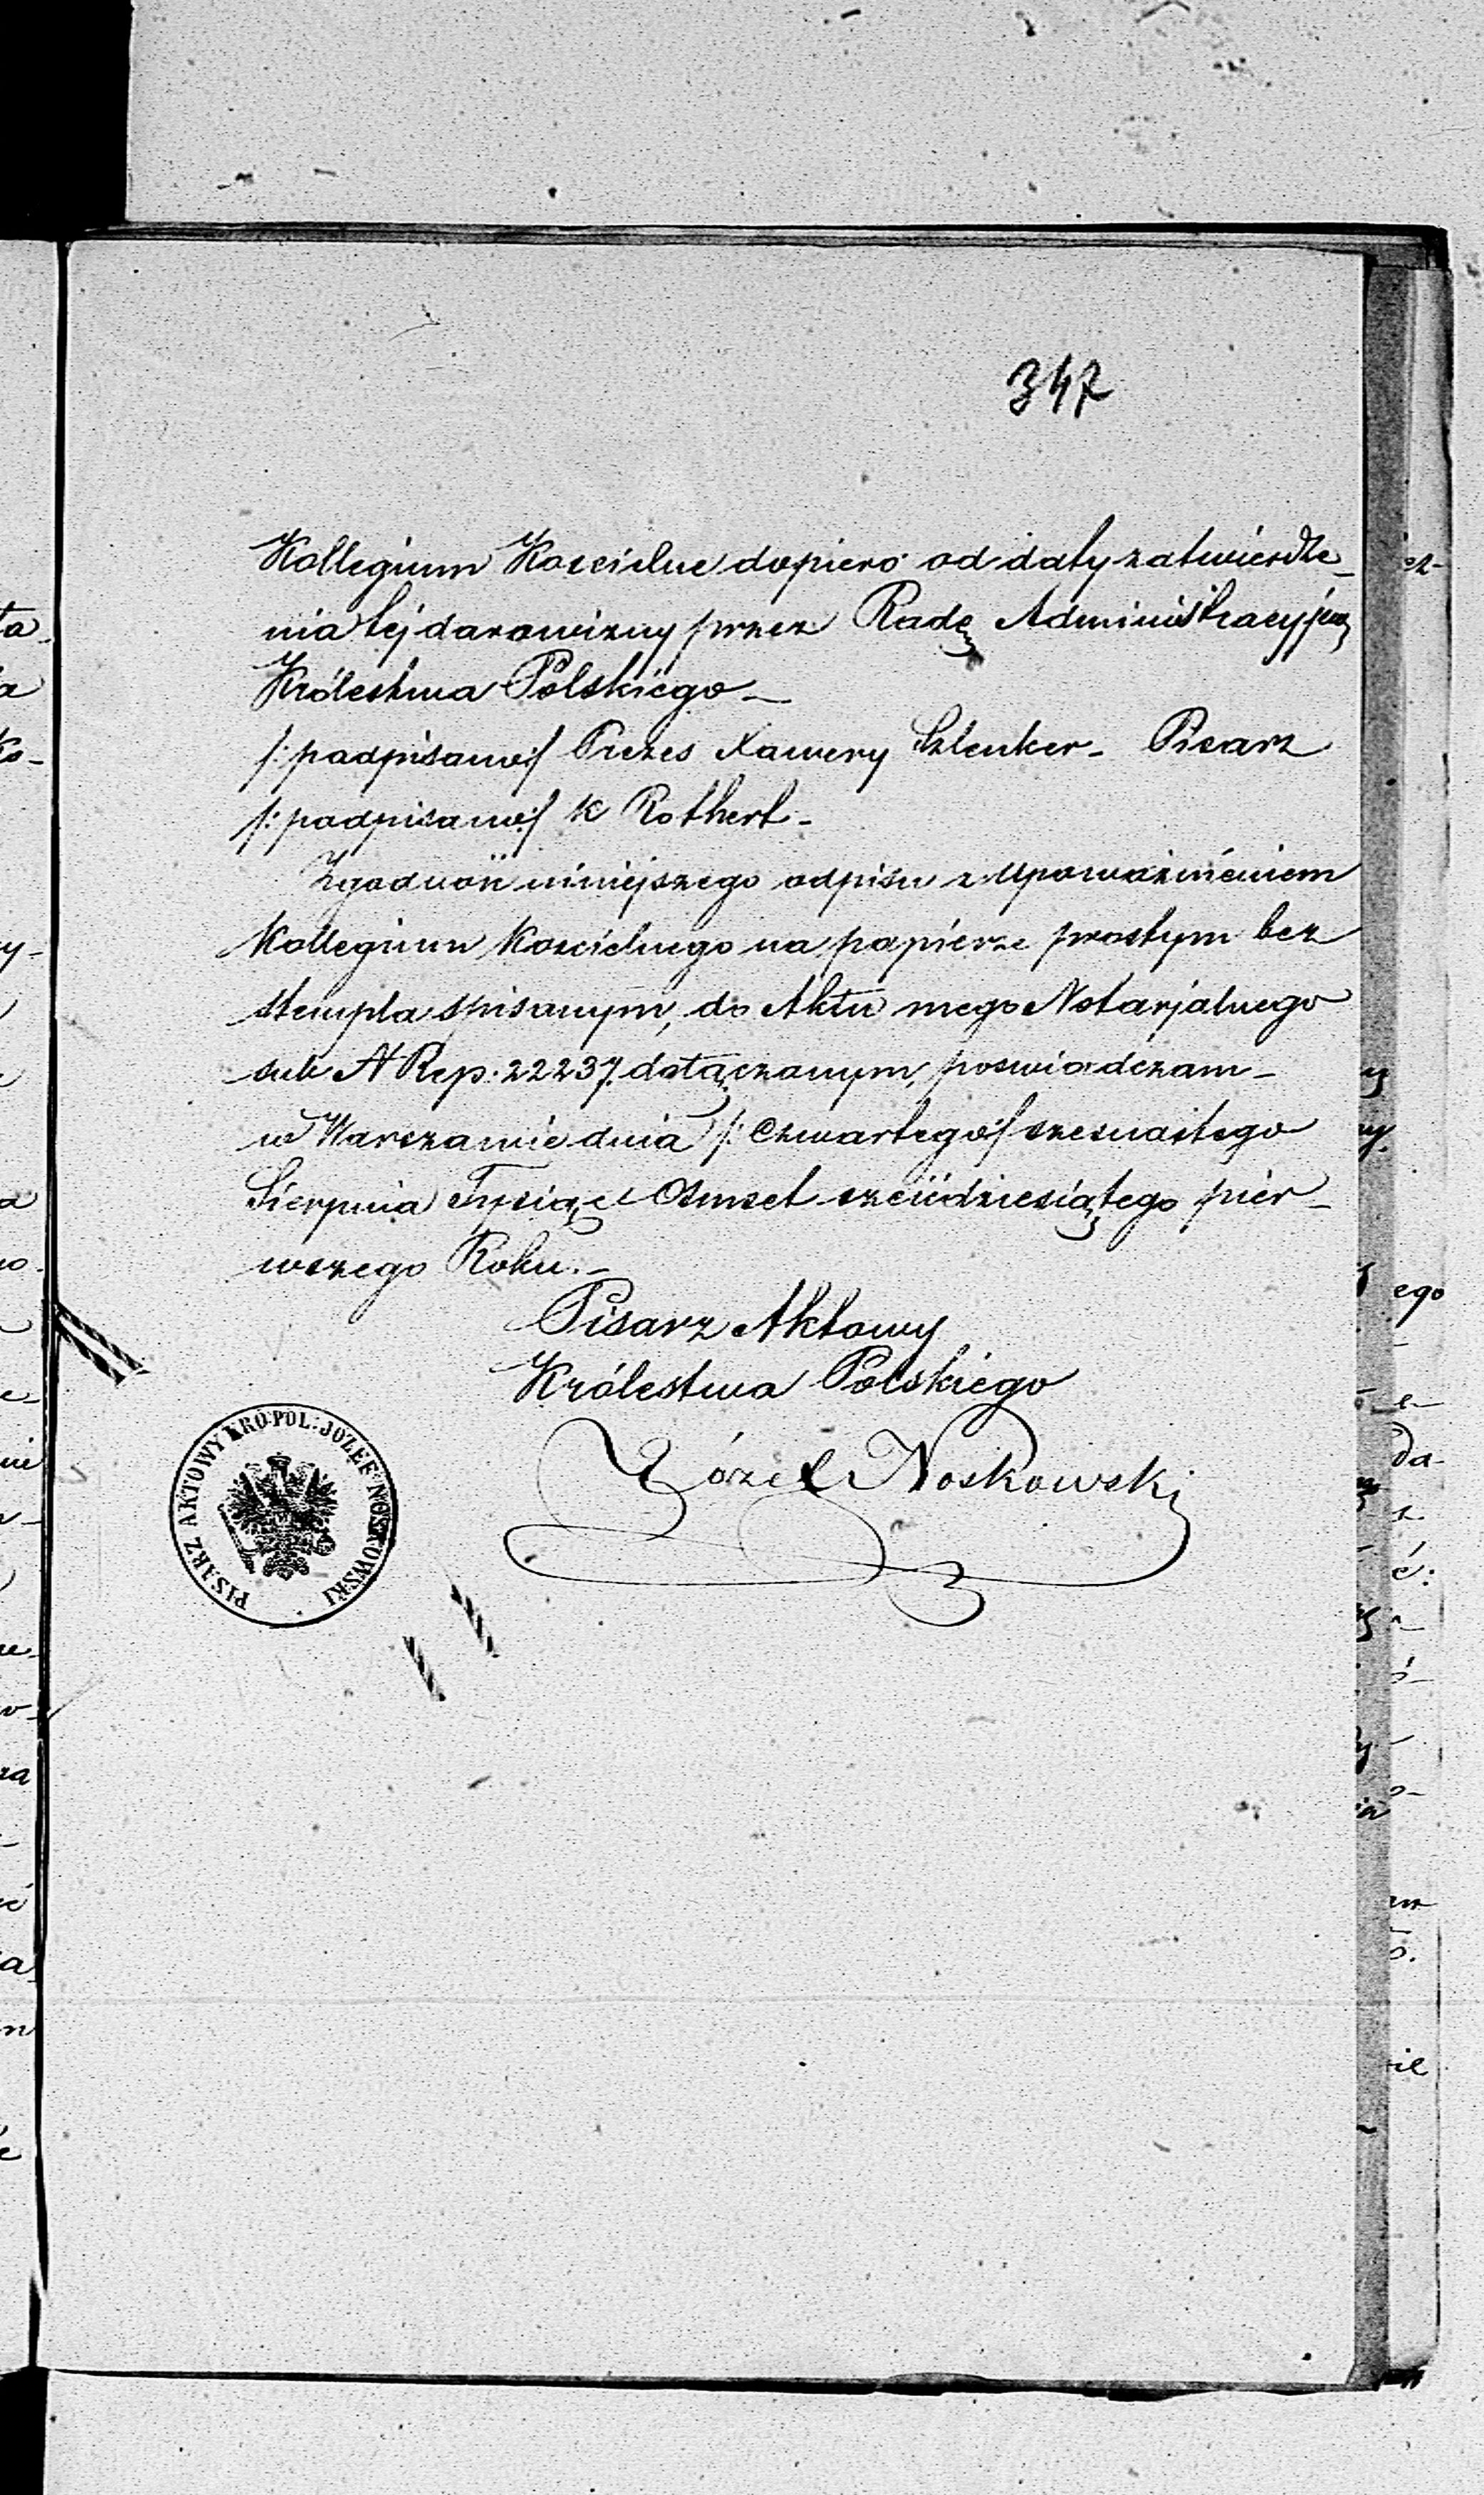 347
Kollegium Kościelne dopiero od daty zatwierdze_
nia tej darowizny przez Radę Administracyjną
Królestwa Polskiego_
/:podpisano:/ Prezes Xawery Szlenker_ Pisarz
/:podpisano:/ K Rothert_
Zgodność niniejszego odpisu z upoważnieniem
Kollegium Kościelnego na papierze prostym bez
stempla spisanym, do Aktu mego Notarjalnego
sub N Rep. 22237. dołączanym, poswiadczam_
w Warszawie dnia /:Czwartego:/ szesnastego
Sierpnia Tysiąc Osmset sześćdziesiątego pier_
wszego Roku._
Pisarz Aktowy
Królestwa Polskiego
Józef Noskowski
PISARZ AKTOWY KRO.POL: JOZEF NOSKOWSKI